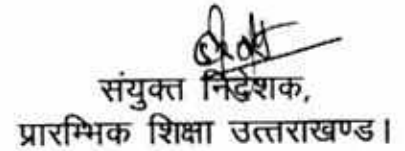 संयुक्त निदेशक,
प्रारम्भिक शिक्षा उत्तराखण्ड।